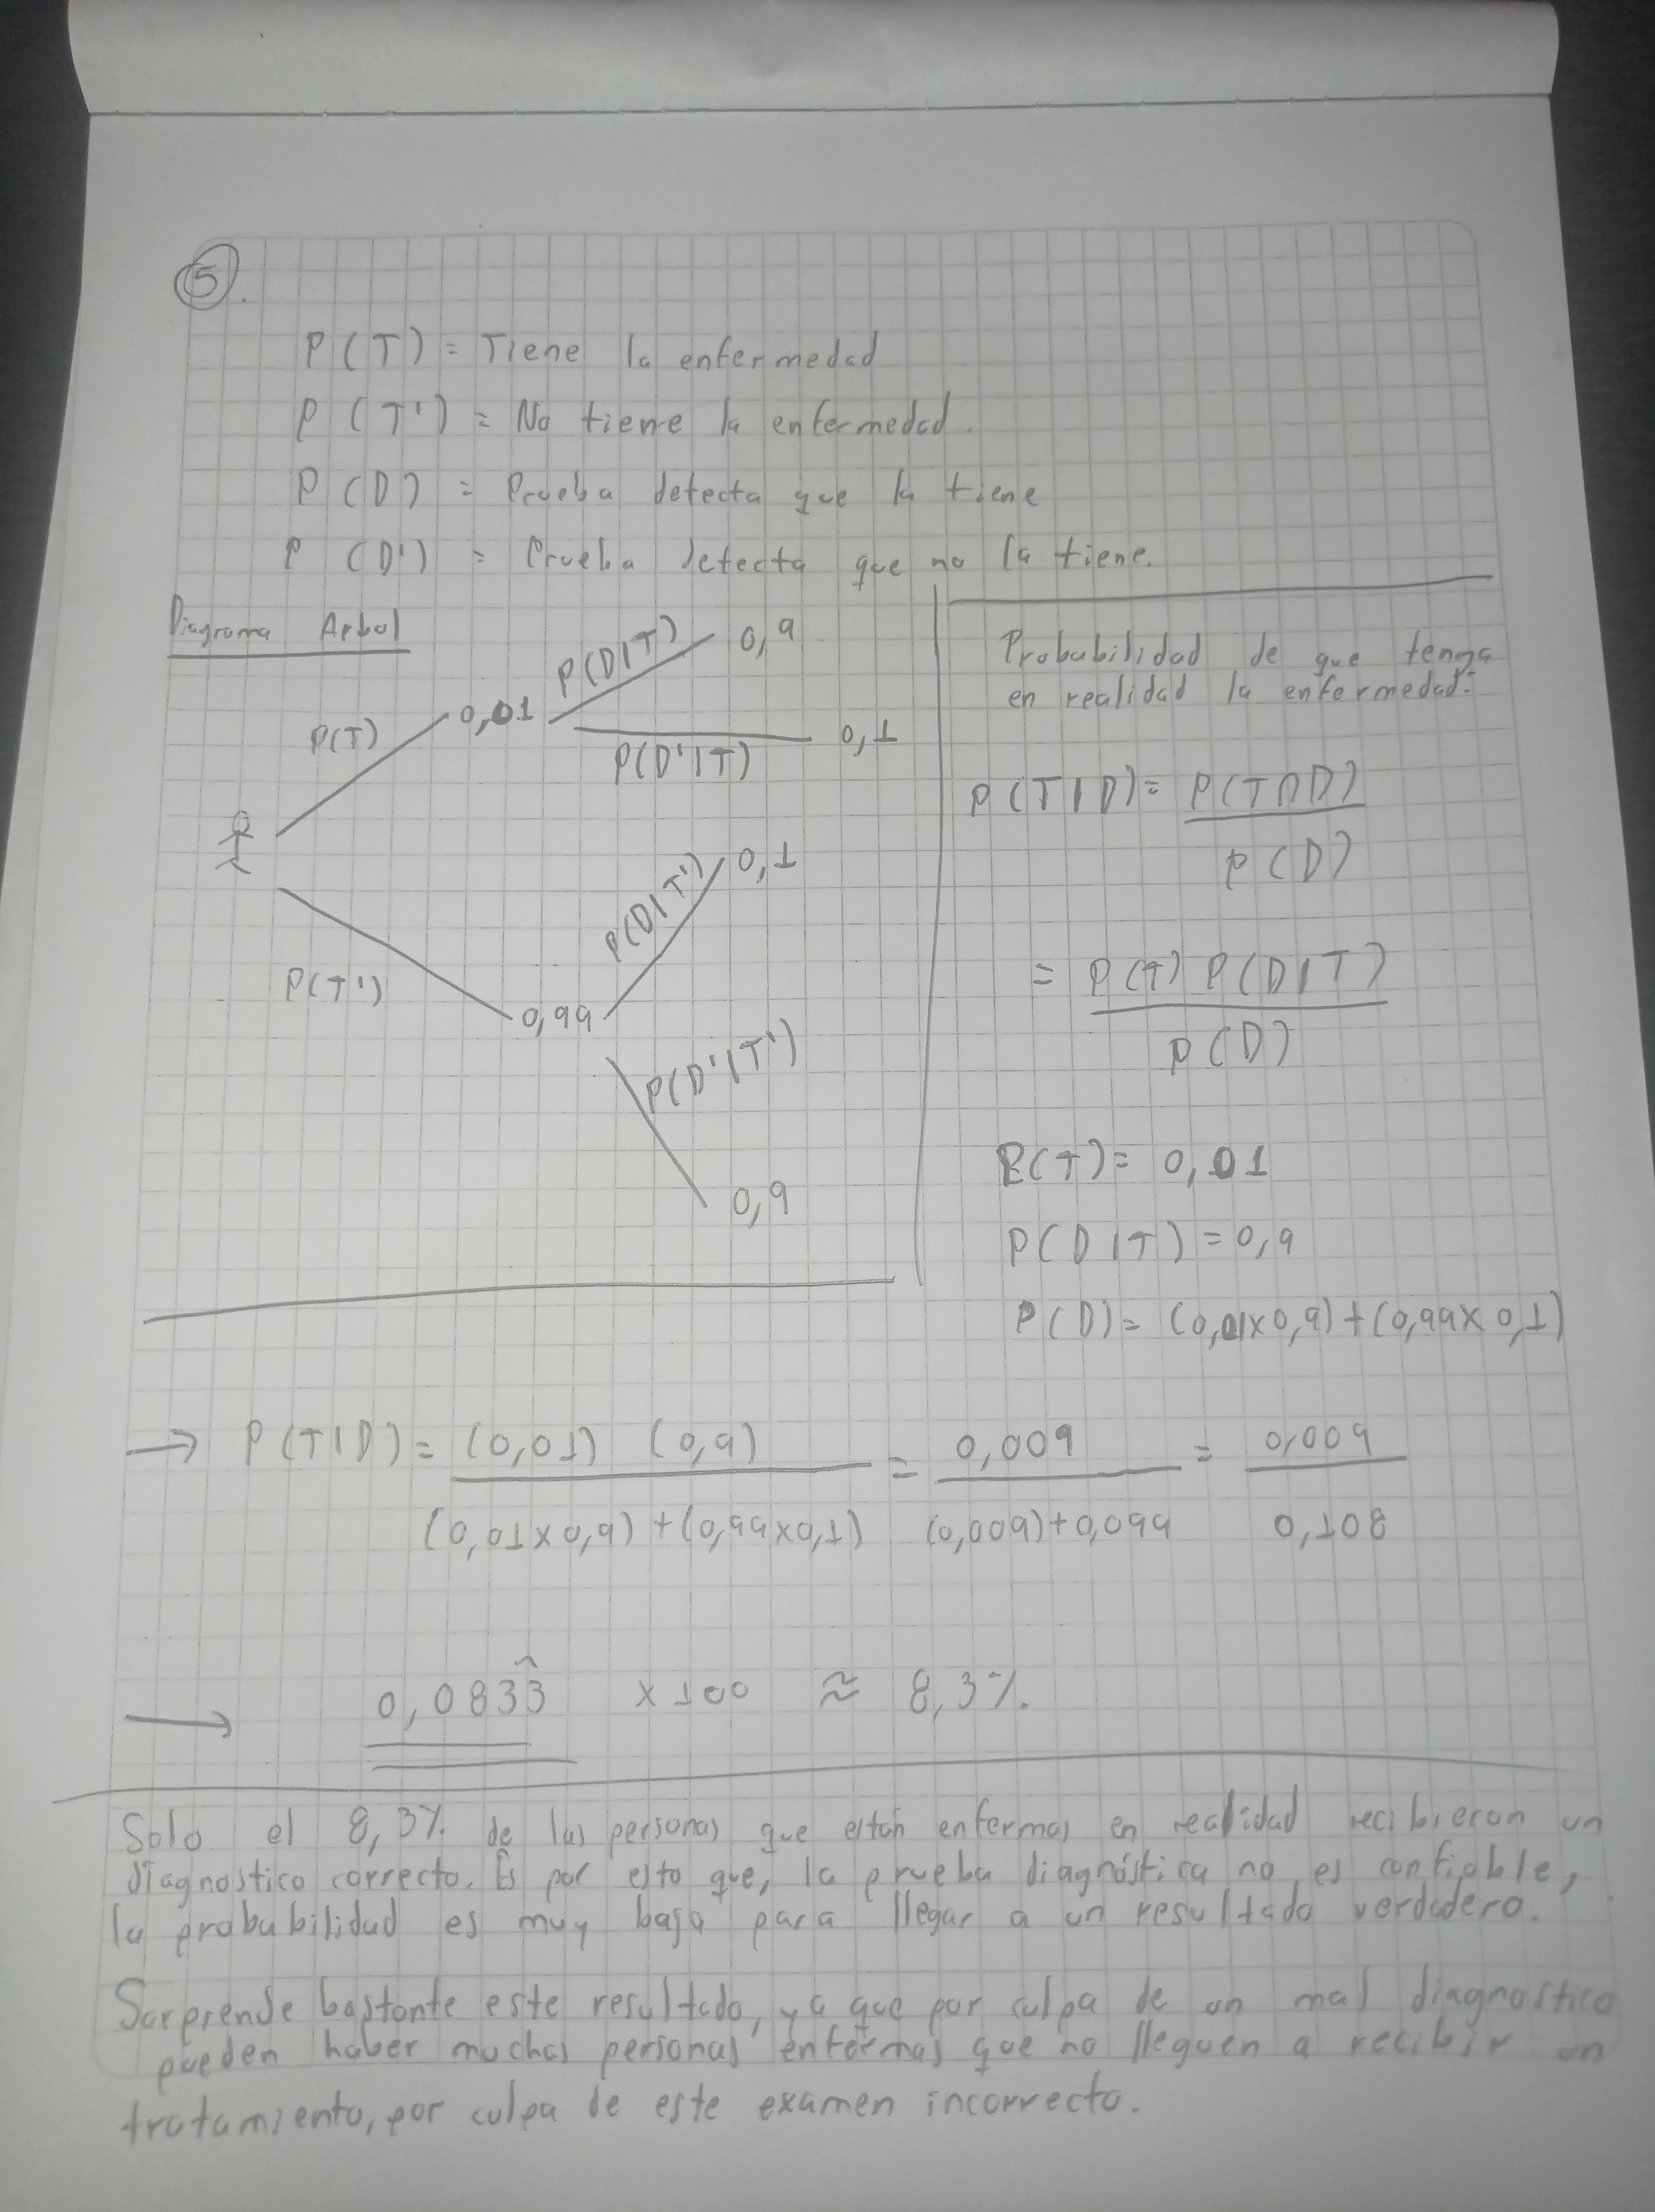 5.
P(T) = Tiene la enfermedad
P(T') = No tiene la enfermedad.
P(D) = Prueba detecta que la tiene
P(D') = Prueba detecta que no la tiene.
Diagrama Arbol
P(T)
0,01
P(D|T)
0,9
P(D'|T)
0,1
P(T')
0,99
P(D|T')
0,1
P(D'|T')
0,9
Probabilidad de que tenga
en realidad la enfermedad:
P(T|D) = P(T∩D)
P(D)
= P(T) P(D|T)
P(D)
P(T) = 0,01
P(D|T) = 0,9
P(D) = (0,01x0,9)+(0,99x0,1)
→ P(T|D) = (0,01) (0,9) = 0,009 = 0,009
(0,01x0,9)+(0,99x0,1) (0,009)+0,099 0,108
→ 0,083̂3 x100 ≈ 8,3%.
Solo el 8,3% de las personas que están enfermas en realidad recibieron un
diagnostico correcto. Es por esto que, la prueba diagnóstica no es confiable,
la probabilidad es muy baja para llegar a un resultado verdadero.
Sorprende bastante este resultado, ya que por culpa de un mal diagnostico
pueden haber muchas personas enfermas que no lleguen a recibir un
tratamiento, por culpa de este examen incorrecto.